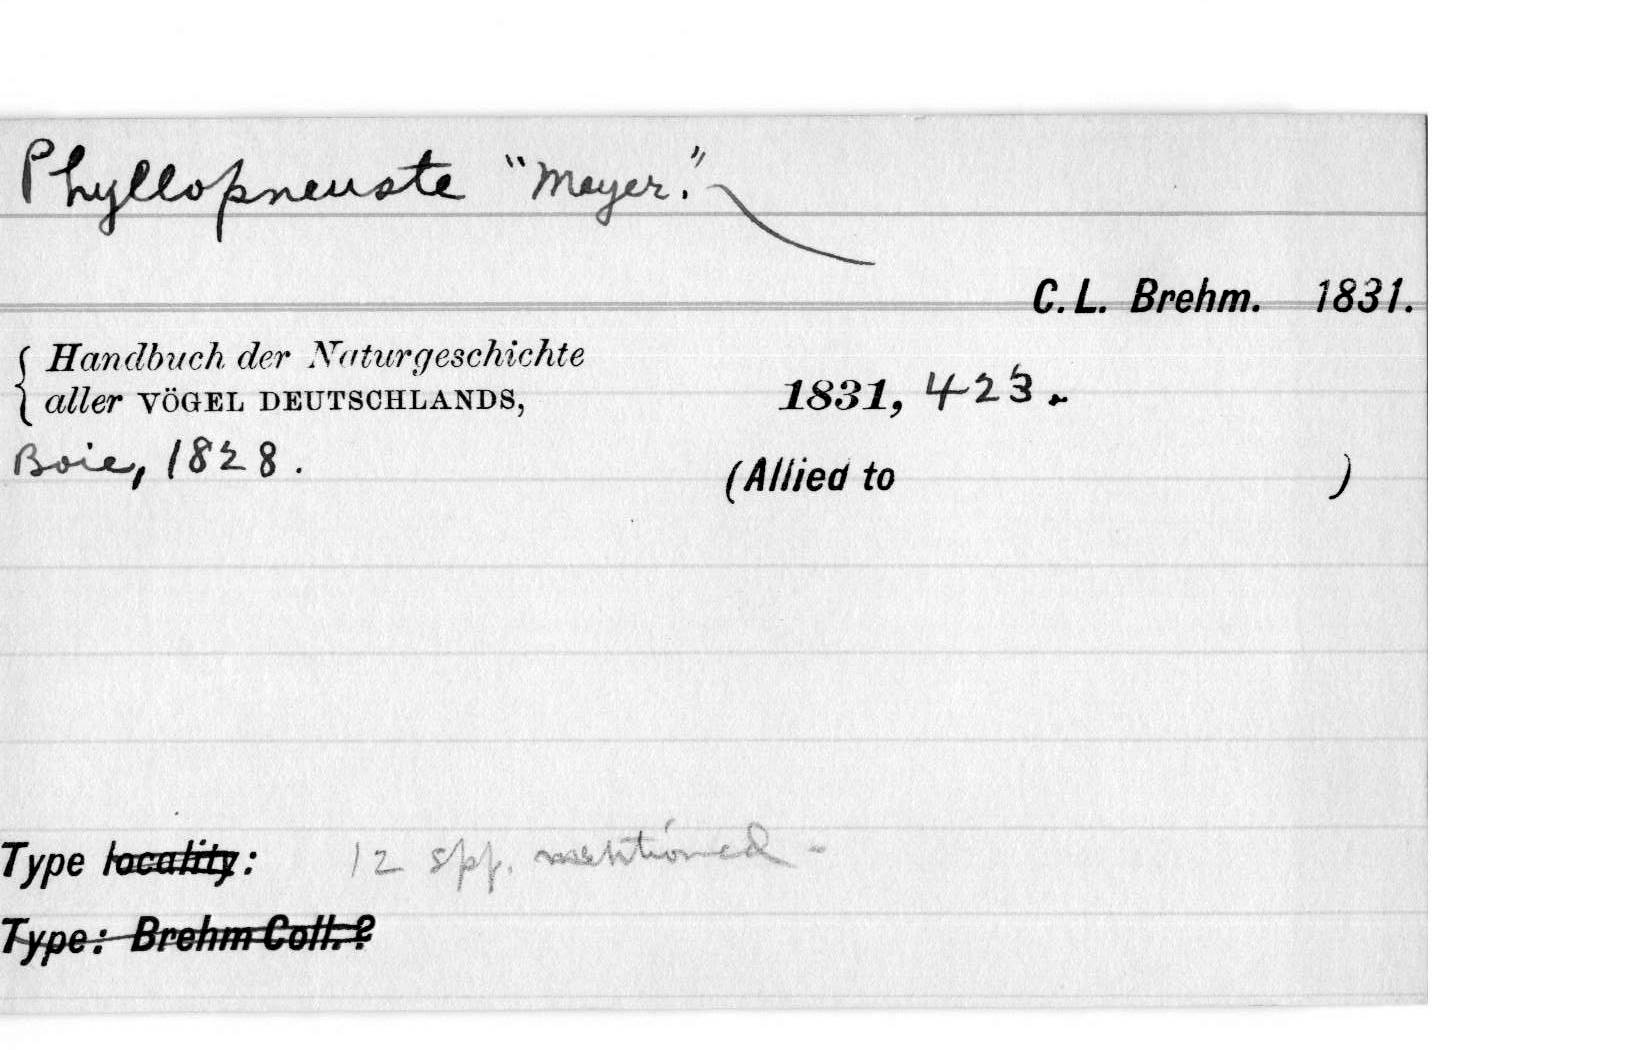 Phyllopneuste "Meyer."
C. L. Brehm. 1831.
Handbuch der Naturgeschichte
aller VÖGEL DEUTSCHLANDS, 1831, 423.
Boie, 1828.
(Allied to )
Type locality: 12 spp. mentioned -
Type: Brehm Coll. ?